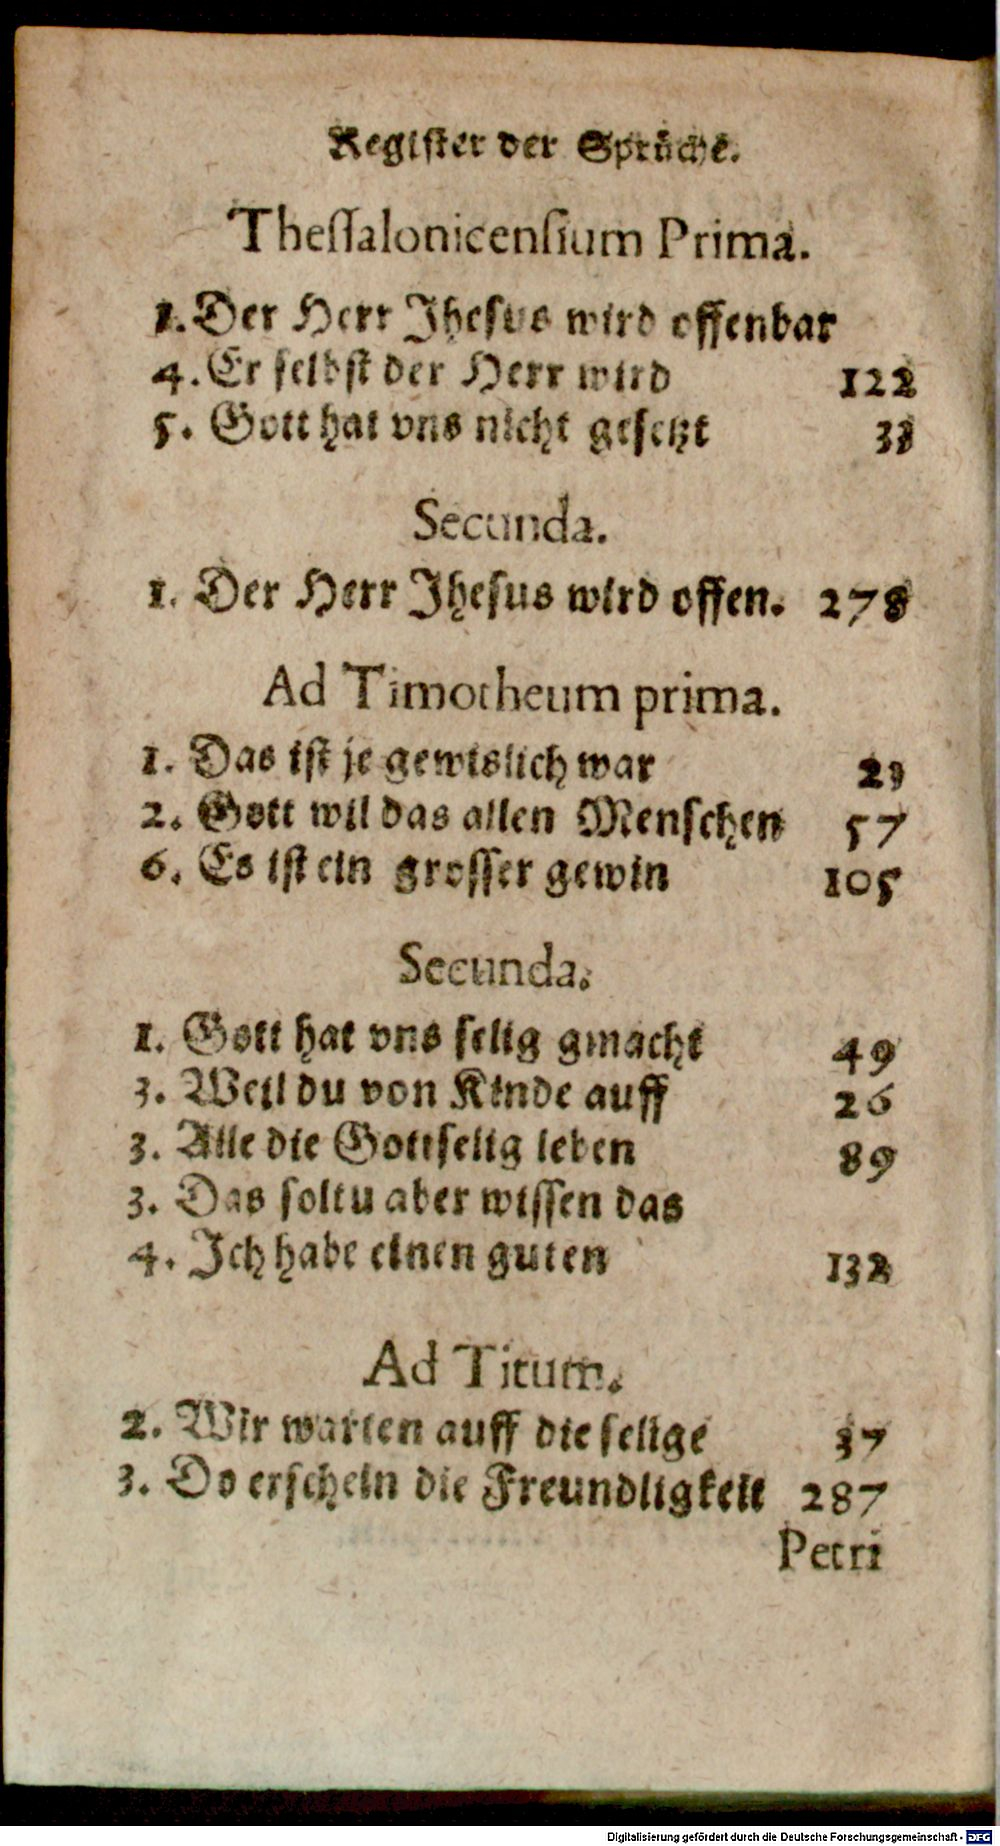 Register der Sprüche.
Thessalonicensium Prima.
1. Der Herr Jhesus wird offenbar
4. Er selbst der Herr wird 122
5. Gott hat vns nicht gesetzt 33
Secunda.
1. Der Herr Jhesus wird offen. 278
Ad Timotheum prima.
1. Das ist je gewislich war 23
2. Gott wil das allen Menschen 57
6. Es ist ein grosser gewin 105
Secunda.
1. Gott hat vns selig gmacht 49
3. Weil du von Kinde auff 26
3. Alle die Gottselig leben 89
3. Das soltu aber wissen das
4. Ich habe einen guten 132
Ad Titum.
2. Wir warten auff die selige 37
3. Do erschein die Freundligkeit 287
Petri
Digitalisierung gefördert durch die Deutsche Forschungsgemeinschaft - DFG